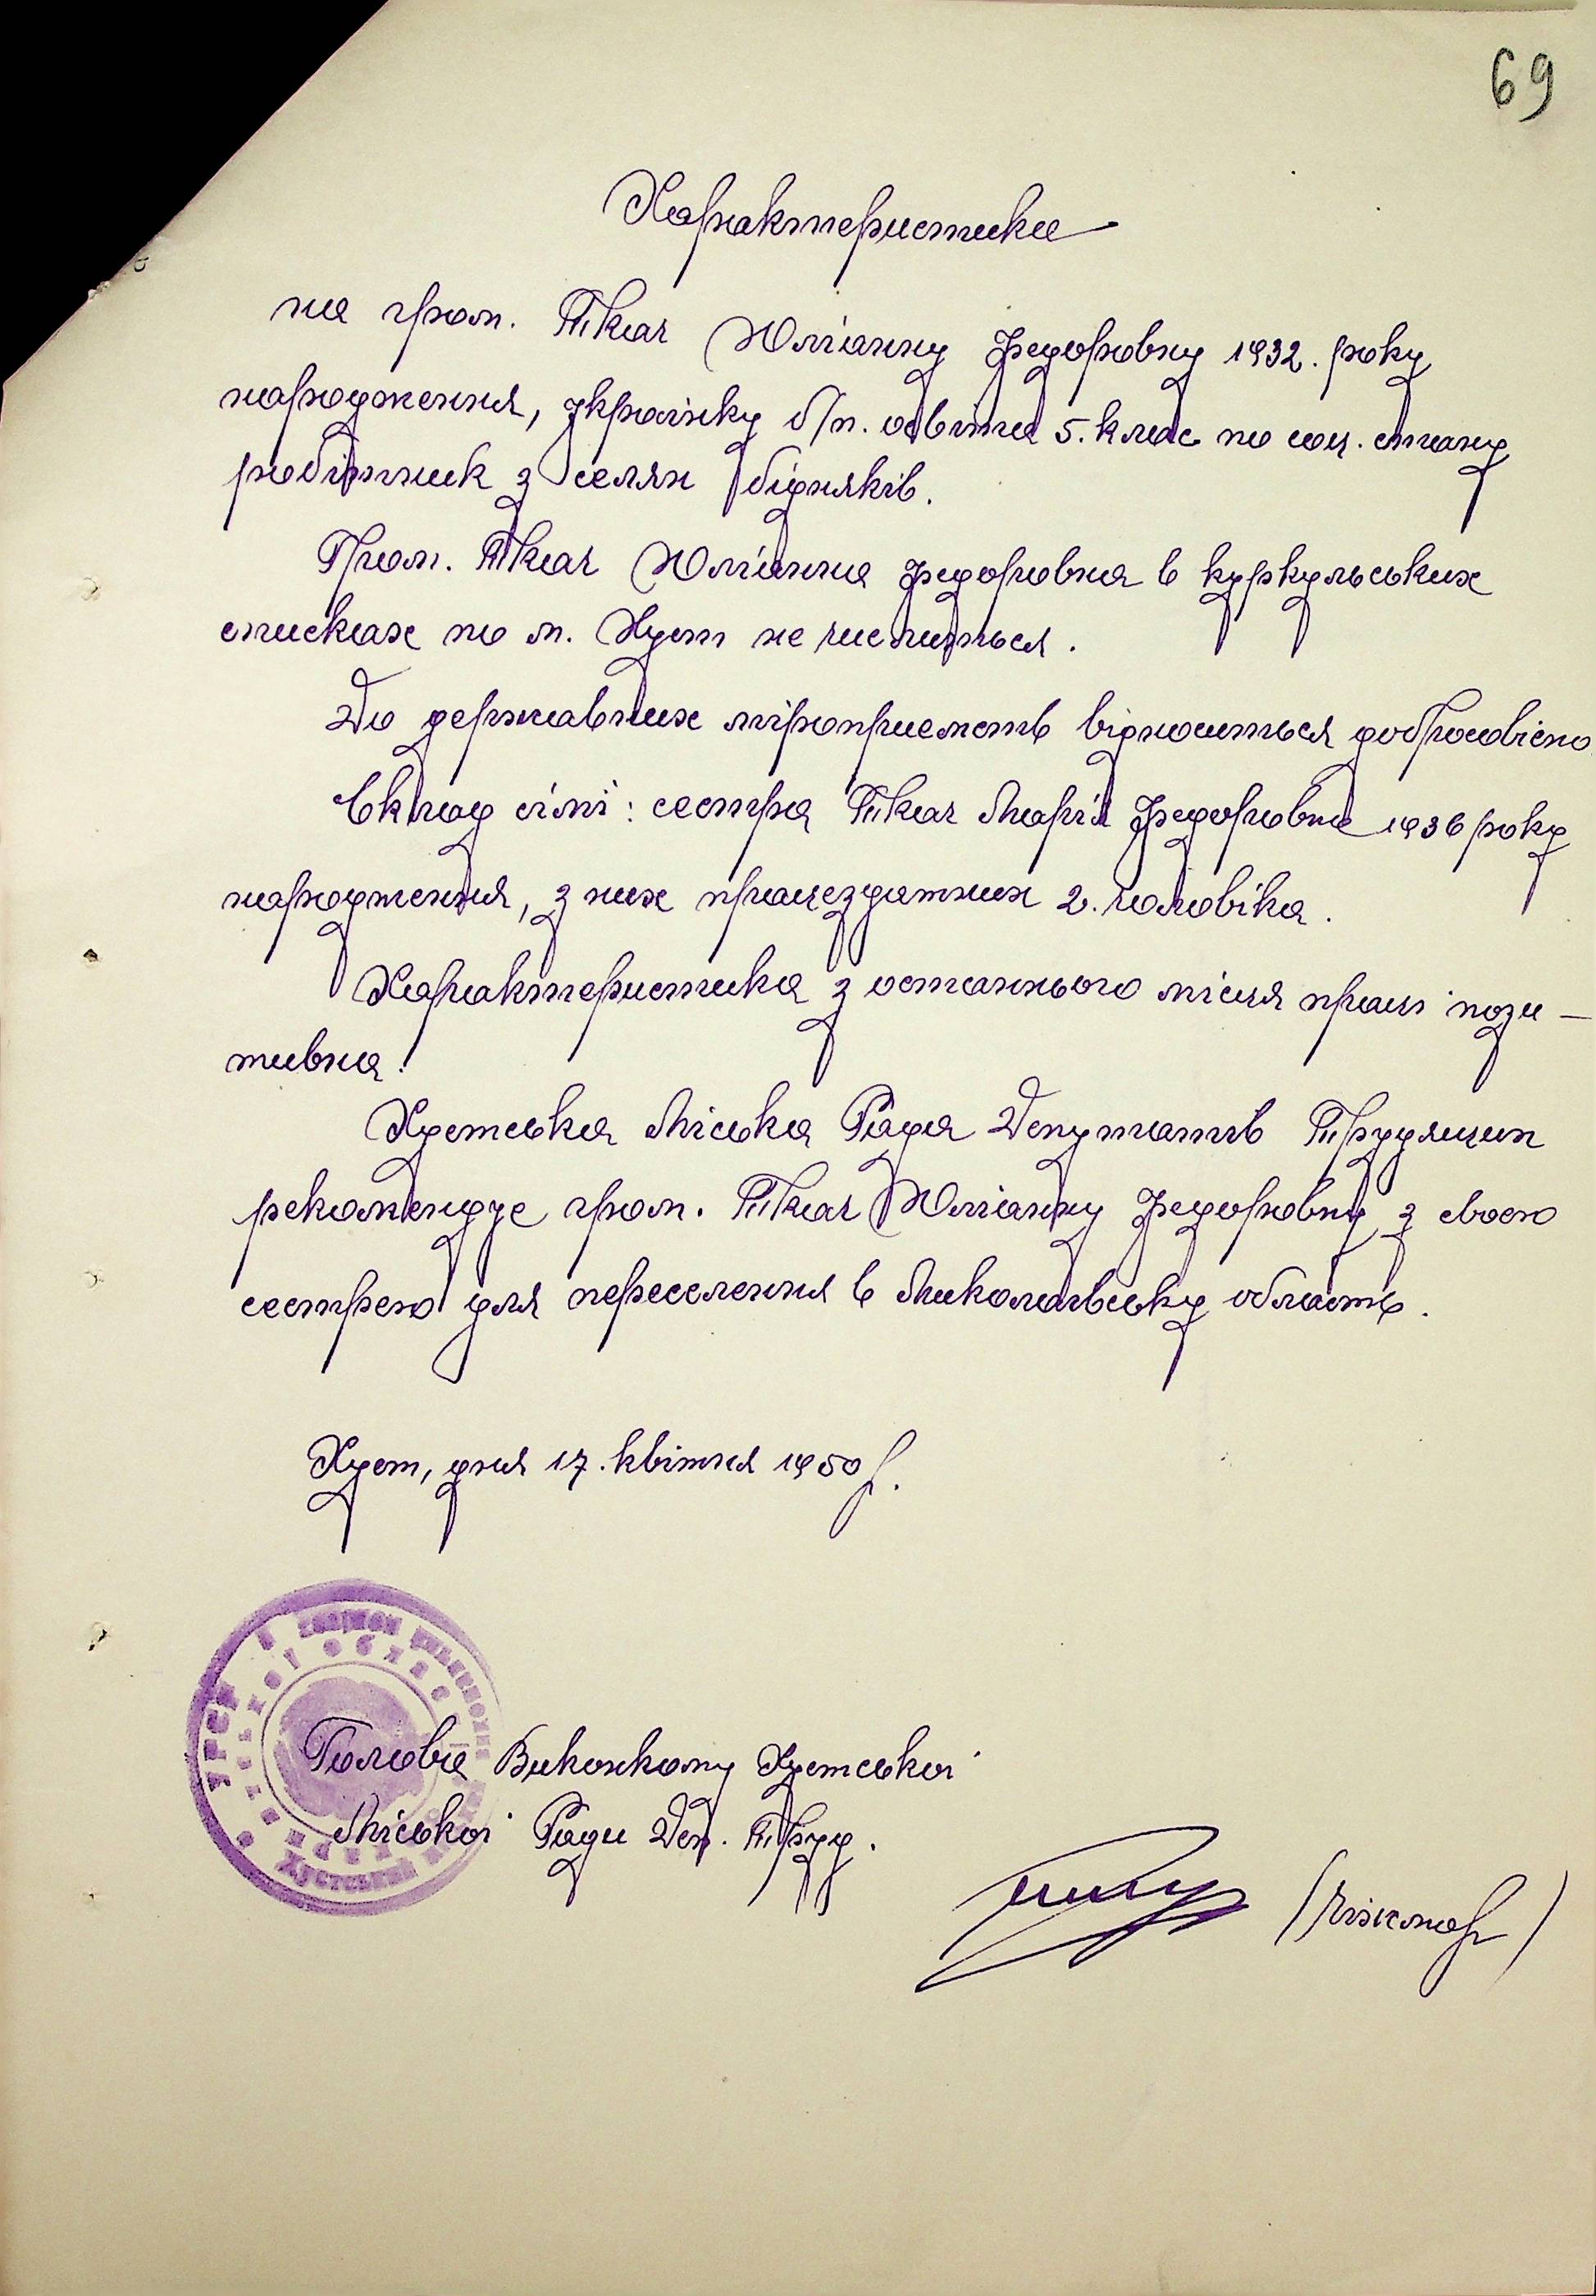 69
Характеристика
на гром. Ткач Юліанну Федоровну 1932. року
народження, українку б/п. освіта 5. клас по соц. стану
робітник з селян бідняків.
Гром. Ткач Юліанна Федоровна в куркульських
списках по м. Хуст не числиться.
До державних міроприємств відноситься добросовісно
Вклад сімі: сестра Ткач Марія Федоровна 1936 року
народження, з них працездатних 2. чоловіка.
Характеристика з останнього місця праці пози-
тивна.
Хустська Міська Рада Депутатів Трудящих
рекомендує гром. Ткач Юліанну Федоровну з своєю
сестрою для переселення в Миколаївську область.
Хуст, дня 17. квітня 1950 р.
УРСР
Хустський
Голова Виконкому Хустської
Міської Ради Деп. Труд.